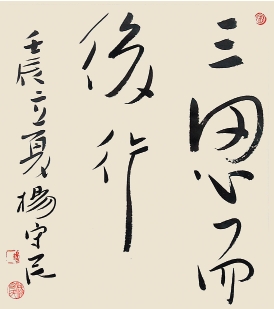 三思而
後行
壬辰立夏楊守民